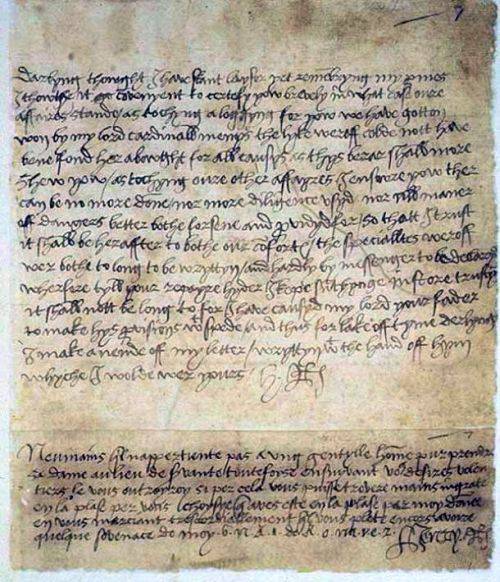 7
Darlyng thowght I have skant laysor yet remembryng my promes
I thowthe it convenient to certefy yow brevely in what case oure
affaires stande / as tochyng a loggyng for yow we have gotton
won by my lord cardinalls menys the lyke weroff colde nott have
bene fond her abowght for all causys as thys berar shall more
shew yow / as tochyng oure other affayres I ensewre yow ther
can be no more done / nor more diligence usyd nor all maner
off dangers better bothe forsene and provydyd for / so thatt I trust
it shall be herafter to bothe our coforte / the specialites weroff
wer bothe to long to be wryttyn / and hardly by messenger to be declaryd
wherfore tyll your repayre hyder I kepe sumthyng in store trustyng
it shall nott be long to for I have causyd my lord your fader
to make hys provisions wt spede and thus for lake off tyme derlyng
I make a nende off my letter / wryttyn wt the hand off hym
whyche I wolde wer yours H R
Neumains il n'appertiente pas a ung gentylle home pur prendre
sa dame au lieu de servante toutefoise ensuivant vos desires volen
tiers le vous outroyroy si per cela vous puisse trovere mains ingrate
en la plase per vous esté en la plase par moy donee
en vous marciant tres cordiallement qu'il vous plete encors avoire
quelque sovenance de moy 6. n. R. 1. de R. o. na. v. e. r. Henry R